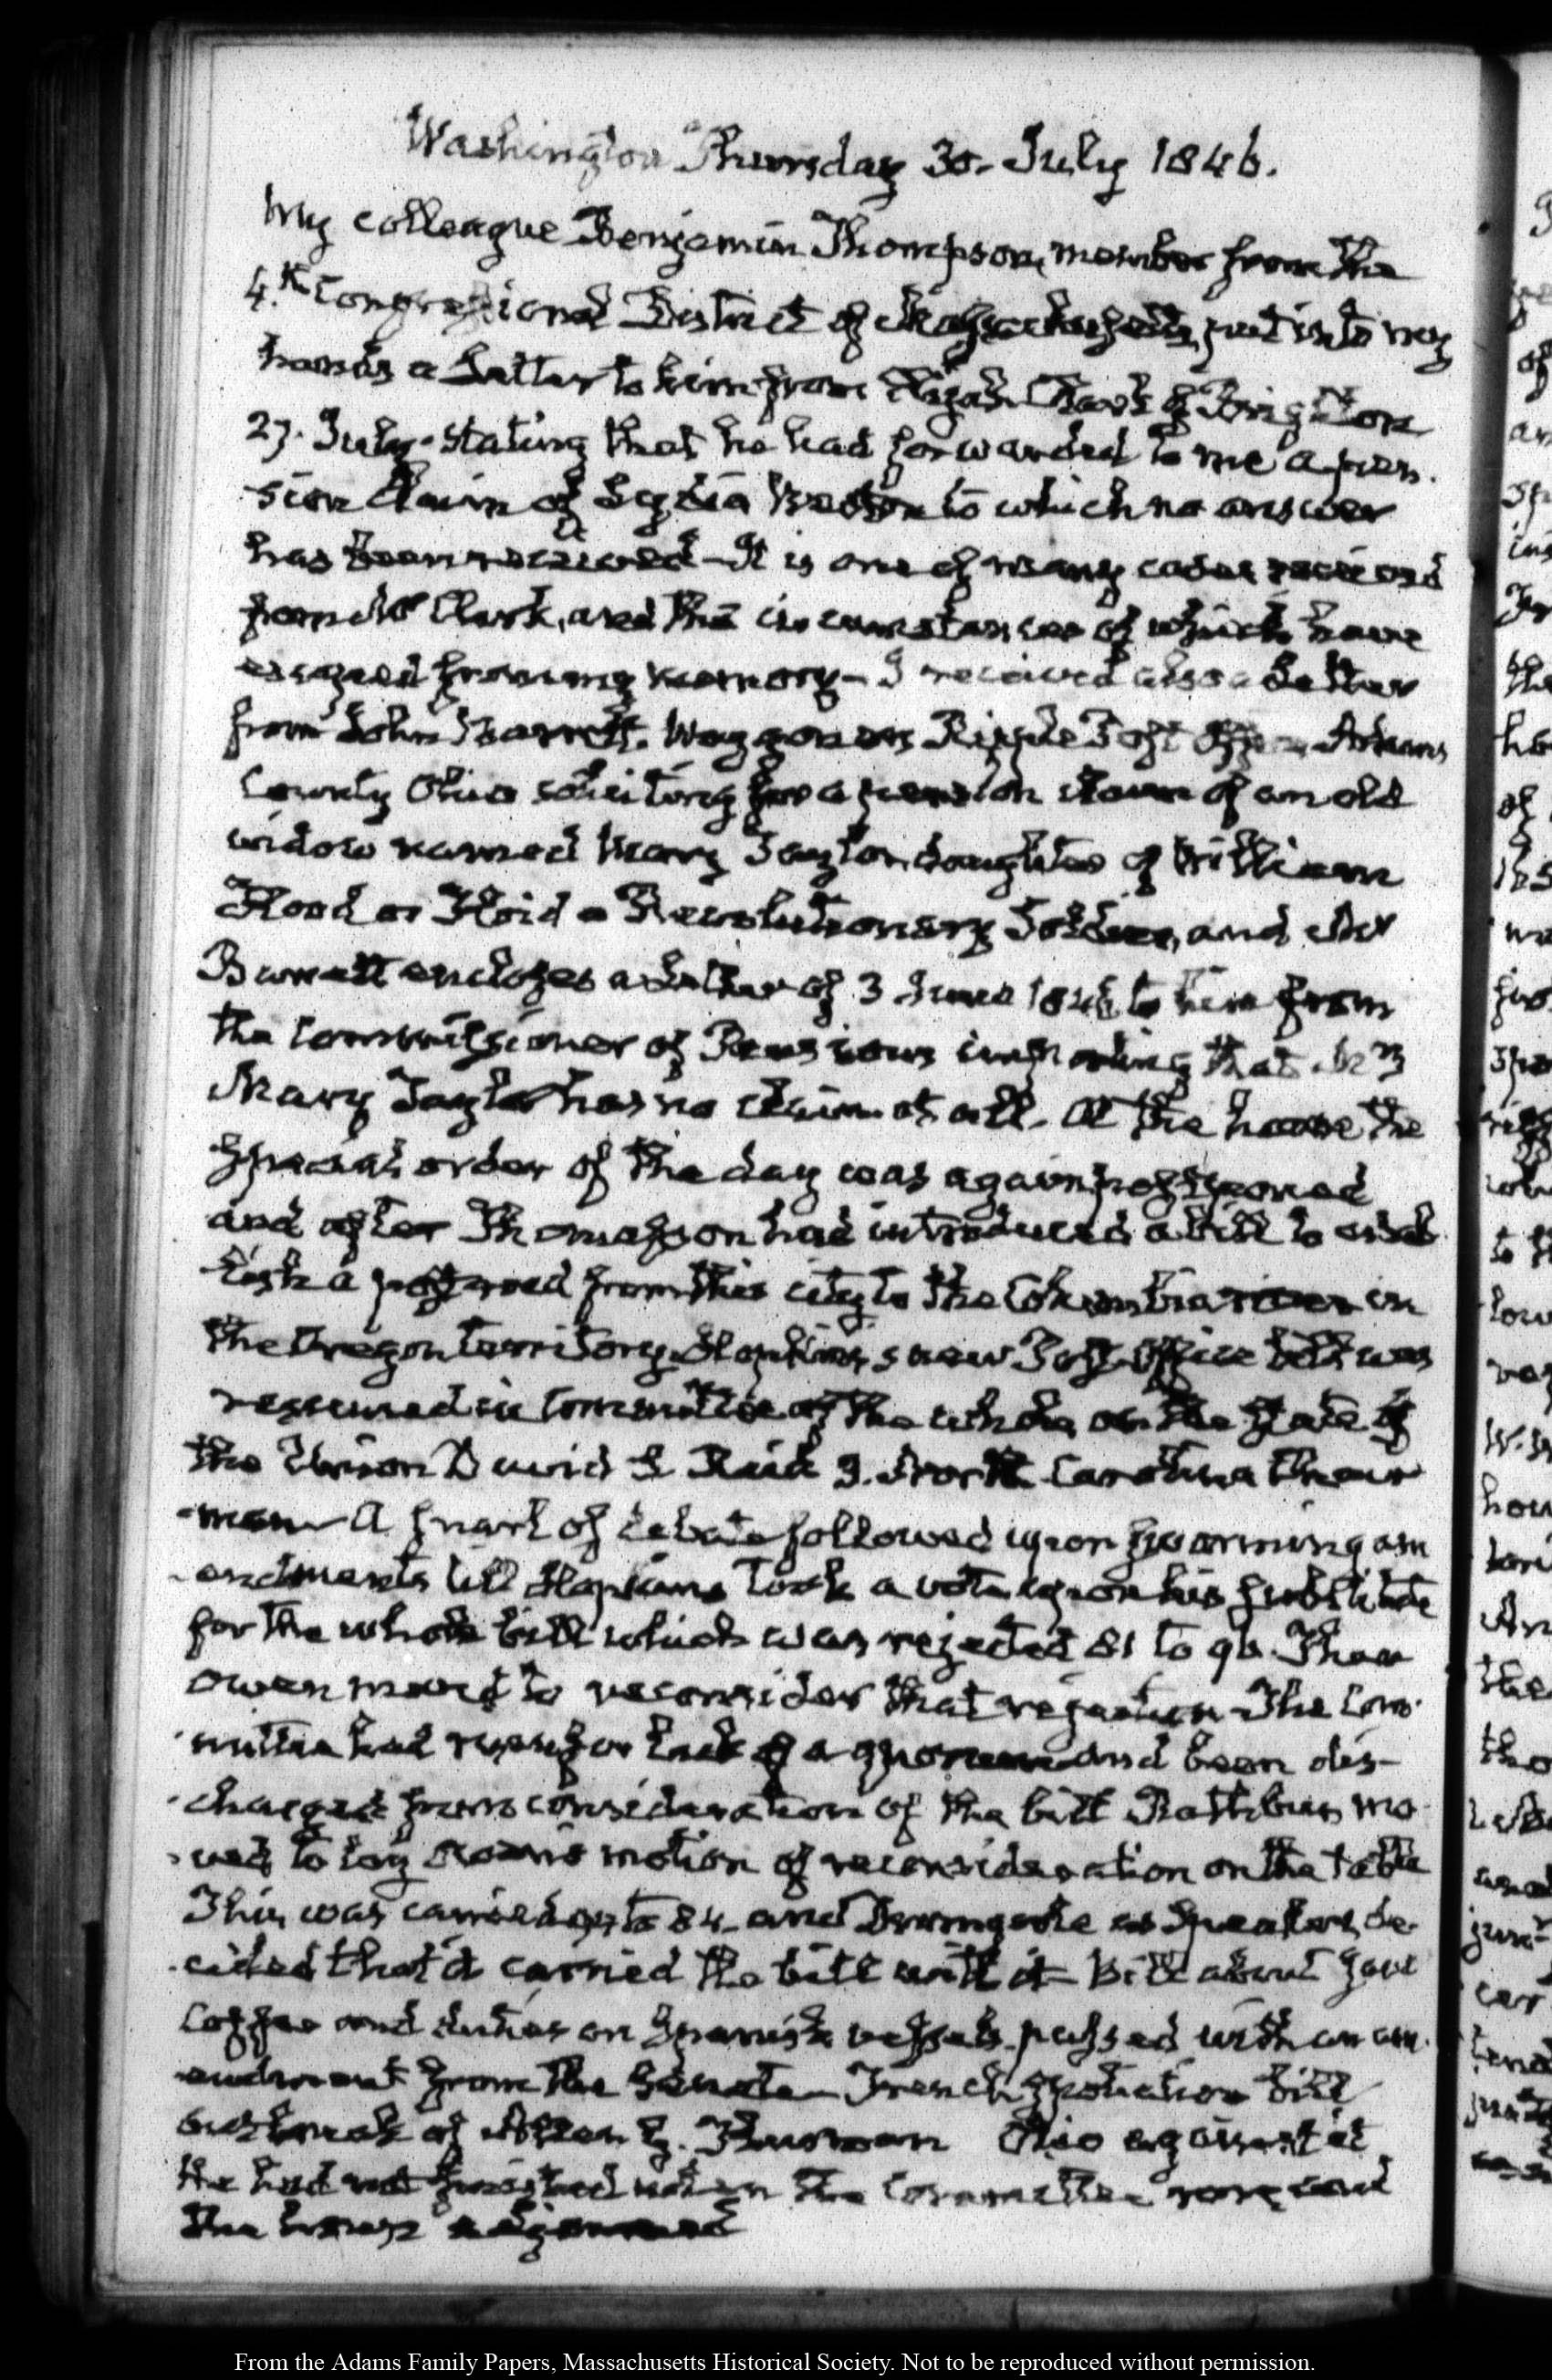 Washington Thursday 30. July 1846.
My colleague Benjamin Thompson, member from the
4.th Congressional District of Massachusetts, put into my
hands a Letter to him from Clark of
27. July. stating that he had forwarded to me a pen-
sion claim of Lydia to which no answer
has been received— It is one of many cases received
from Mr Clark, and the circumstances of which have
escaped from my memory— I received also a Letter
from John Barrett. Waggoners Ripple Post Office, Adams
County Ohio soliciting for a pension claim of an old
widow named Mary Taylor, daughter of William
Flood or Floid a Revolutionary Soldier, and Mr
Barrett encloses a Letter of 3 June 1846 to him from
the Commissioner of Pensions informing that Mrs
Mary Taylor has no claim at all. At the house the
special order of the day was again postponed
and after Thomasson had introduced a bill to estab-
lish a road from this city to the Columbia river in
the Oregon territory, Hopkins's new Post-Office bill was
resumed in Committee of the whole, on the State of
the Union David S Reid 3. North Carolina Chair-
man— A snarl of debate followed upon swarming am
endments till Hopkins took a vote upon his substitute
for the whole bill which was rejected 81 to 96. Then
Owen moved to reconsider that rejection— The Com-
mittee had risen for lack of a quorum and been dis-
charged from consideration of the bill Rathbun mo-
ved to lay Owen's motion of reconsideration on the table
This was carried to 84. and Dromgoole as Speaker, de-
cided that it carried the bill with it— Bill about Java
Coffee and duties on Spanish vessels passed with an am-
endment from the Senate— French Spoliation bill
outbreak of Allen G. Thurman Ohio against it
he had not finished when the Committee rose and
the house adjourned
From the Adams Family Papers, Massachusetts Historical Society. Not to be reproduced without permission.